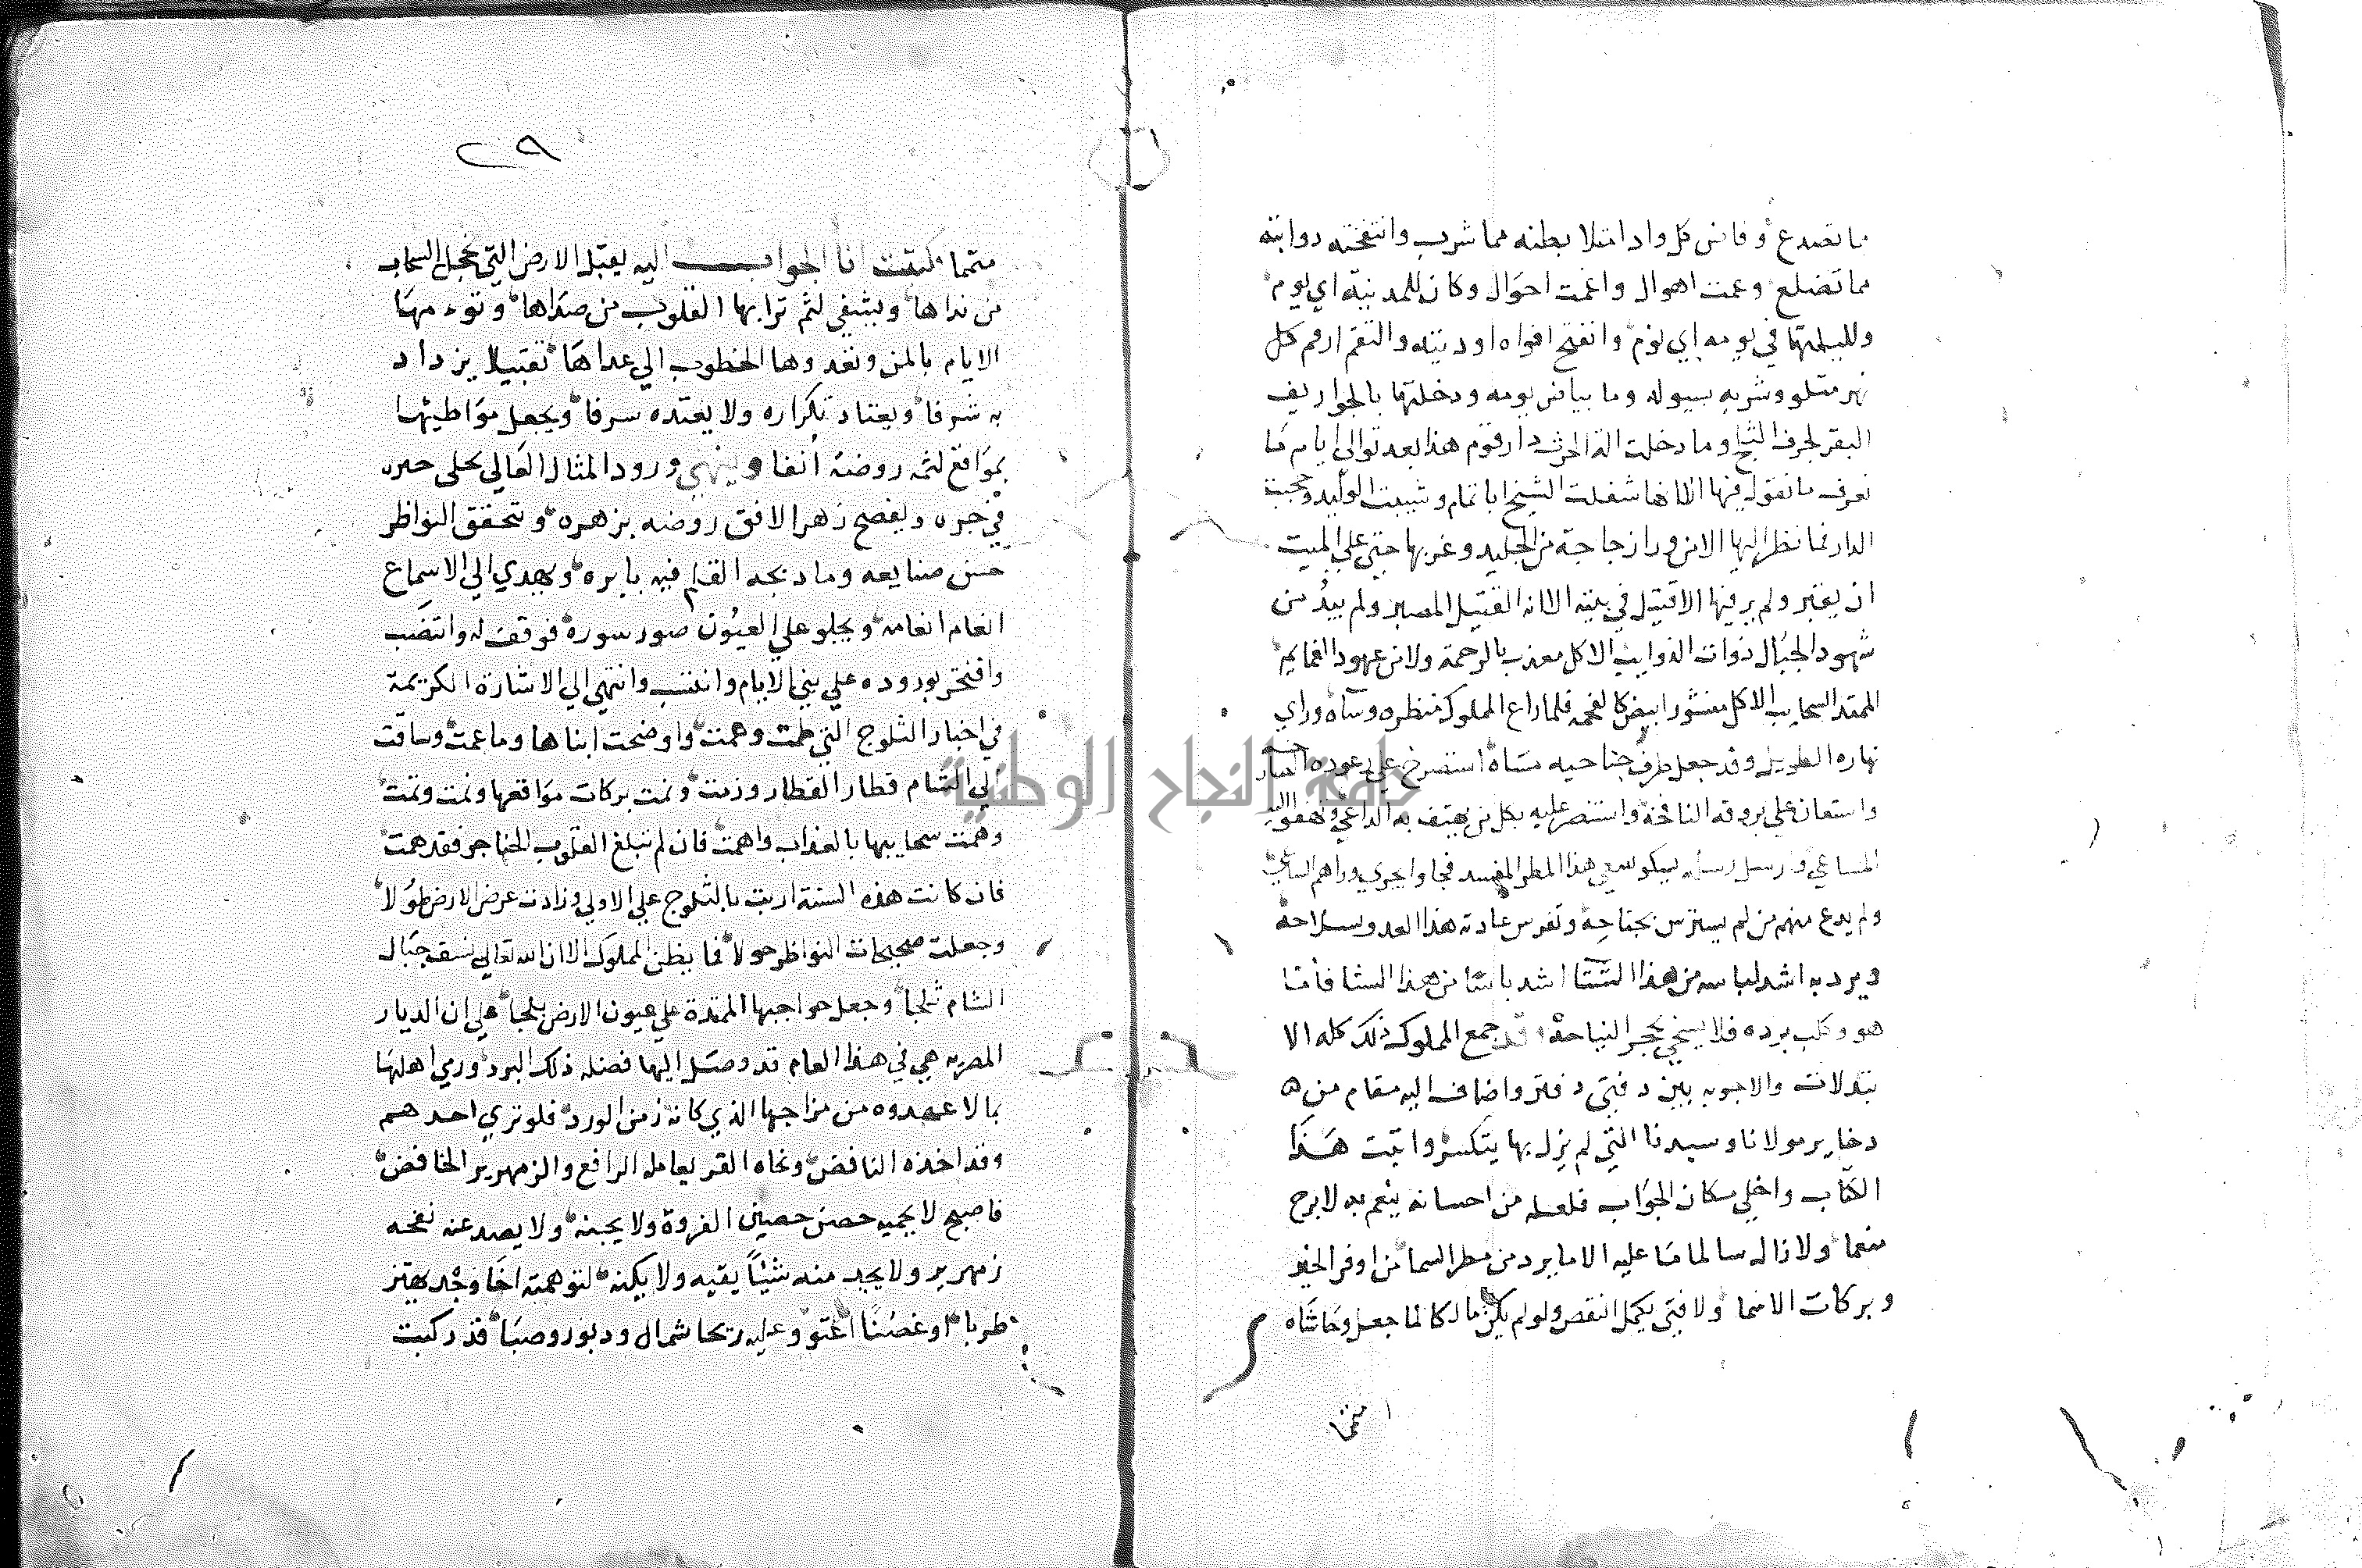 ما تصدع وفاض كل واد امتلا بطنه مما شرب وانتفخته دوابته
مما تضلع وعمت اهوال واغمت احوال وكان للمدينة اي يوم
ولليلتها في يومه اي نوم وانفتح افواه اوديته والتقم ارقم كل
نهر ممتلو وشربه بسيوله وما بياض يومه ودخلتها بالجواريف
البقر لجرف الثلج وما دخلت الة الحرث دار قوم هذا بعد توالي ايام ما
نعرف ما نقول فيها الا انها شغلت الشيخ ابا تمام وشيبت الوليد وحجبت
الدار فما نظر اليها الا من ورا زجاجة من الجليد وغربها حتى علي الميت
ان يقبر ولم ير فيها الا قتيل في بيته الا انه القتيل المصبر ولم يبد من
شهود الجبال ذوات الذوايب الا كل معذب بالرحمة ولا من عهود الغمايم
الممتد السحايب الا كل منشور ابيض كالفحمه فلما راع المملوك منظره وساه وراي
نهاره الطويل وقد جعل طرف جناحيه مساه استصرخ علي رعوده
واستعان علي بروقه النافخة واستنصر عليه بكل من يهتف به الداعي
المساعي وارسل رسله بيكو سعي هذا المطر المفسد فجا واجري وراهم الساعي
ولم يدع منهم من لم يستترس بجناحه وتفرس عادة هذا العدو وسلاحه
ويرد به اشد لباسه من هذا الشتا اشد باسا من هذا الشتا فاما
هو وكلب برده فلا يسخي بحجر النياحة قد جمع المملوك ذلك كله الا
تبدلات والاجوبه بين دفتي دفتر واضاف اليه مقام من ه
دخاير مولانا وسيدنا التي لم يزل بها يتكسر واثبت هذا
الكتاب واخلي مكان الجواب فلعله من احسانه ينعم به لا برح
منعما ولا زال سالما ما عليه الا ما يرد من مطر السما من اوفر الخير
وبركات الانما ولا فتي يكمل النقص ولو لم يكن مالكا لما جعل وحاشاه
متمما
جامعة النجاح الوطنية
٢٩
متمما فكتبت انا الجواب اليه يقبل الارض التي تخجل السحاب
من نداها ويشفي لثم ترابها القلوب من صداها وتوء مها
الايام بالمن وتعدوها الخطوب الي عداها تقبيلا يزداد
به شرفا ويعتاد تكراره ولا يعتده سرفا ويجعل مواطيها
بمواقع لثمه روضة أنفا وينهي ورود المثال العالي تحلى حبره
في حبره ويفضح زهر الافق روضه بزهره وتتحقق النواظر
حسن صنايعه وما دبجه القلم فيه بابره ويهدي الي الاسماع
انعام انغامه ويجلو علي العيون صور سوره فوقف له وانتصب
وافتخر بوروده علي بني الايام وانتسب وانتهي الي الاشارة الكريمة
في اخبار الثلوج التي طمت وهمت واوضحت ابناها وما عمت وساقت
الي الشام قطار القطار وزمت ونمت بركات مواقعها ونمت وتمت
وهمت سحايبها بالعذاب واهمت فان لم تبلغ القلوب الحناجر فقد همت
فان كانت هذه السنة اربت بالثلوج علي الاولي وزادت عرض الارض طولا
وجعلت صحيحات النواظر حولا فما يظن المملوك الا ان الله تعالي نسف جبال
الشام ثلجا وجعل حواجبها الممتدة علي عيون الارض بلجا علي ان الديار
المصريه هي في هذا العام قد وصل اليها فضله ذلك البرد ورمي اهلها
بما لا عهدوه من مزاجها الذي كانه زمن الورد فلو تري احدهم
وقد اخذه النافض ونحاه القر بعامله الرافع والزمهرير الخافض
فاصبح لا يحميه حصن حصين الفروة ولا يجنه ولا يصد عنه نفحه
زمهرير ولا يجد منه شيئاً يقيه ولا يكنه لتوهمته اخا وجد يهتز
طربا او غصنا اعتو وعليه ريحا شمال ودبور وصبا قد ركبت